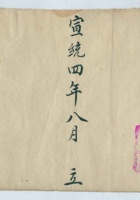 宣統四年八月 立